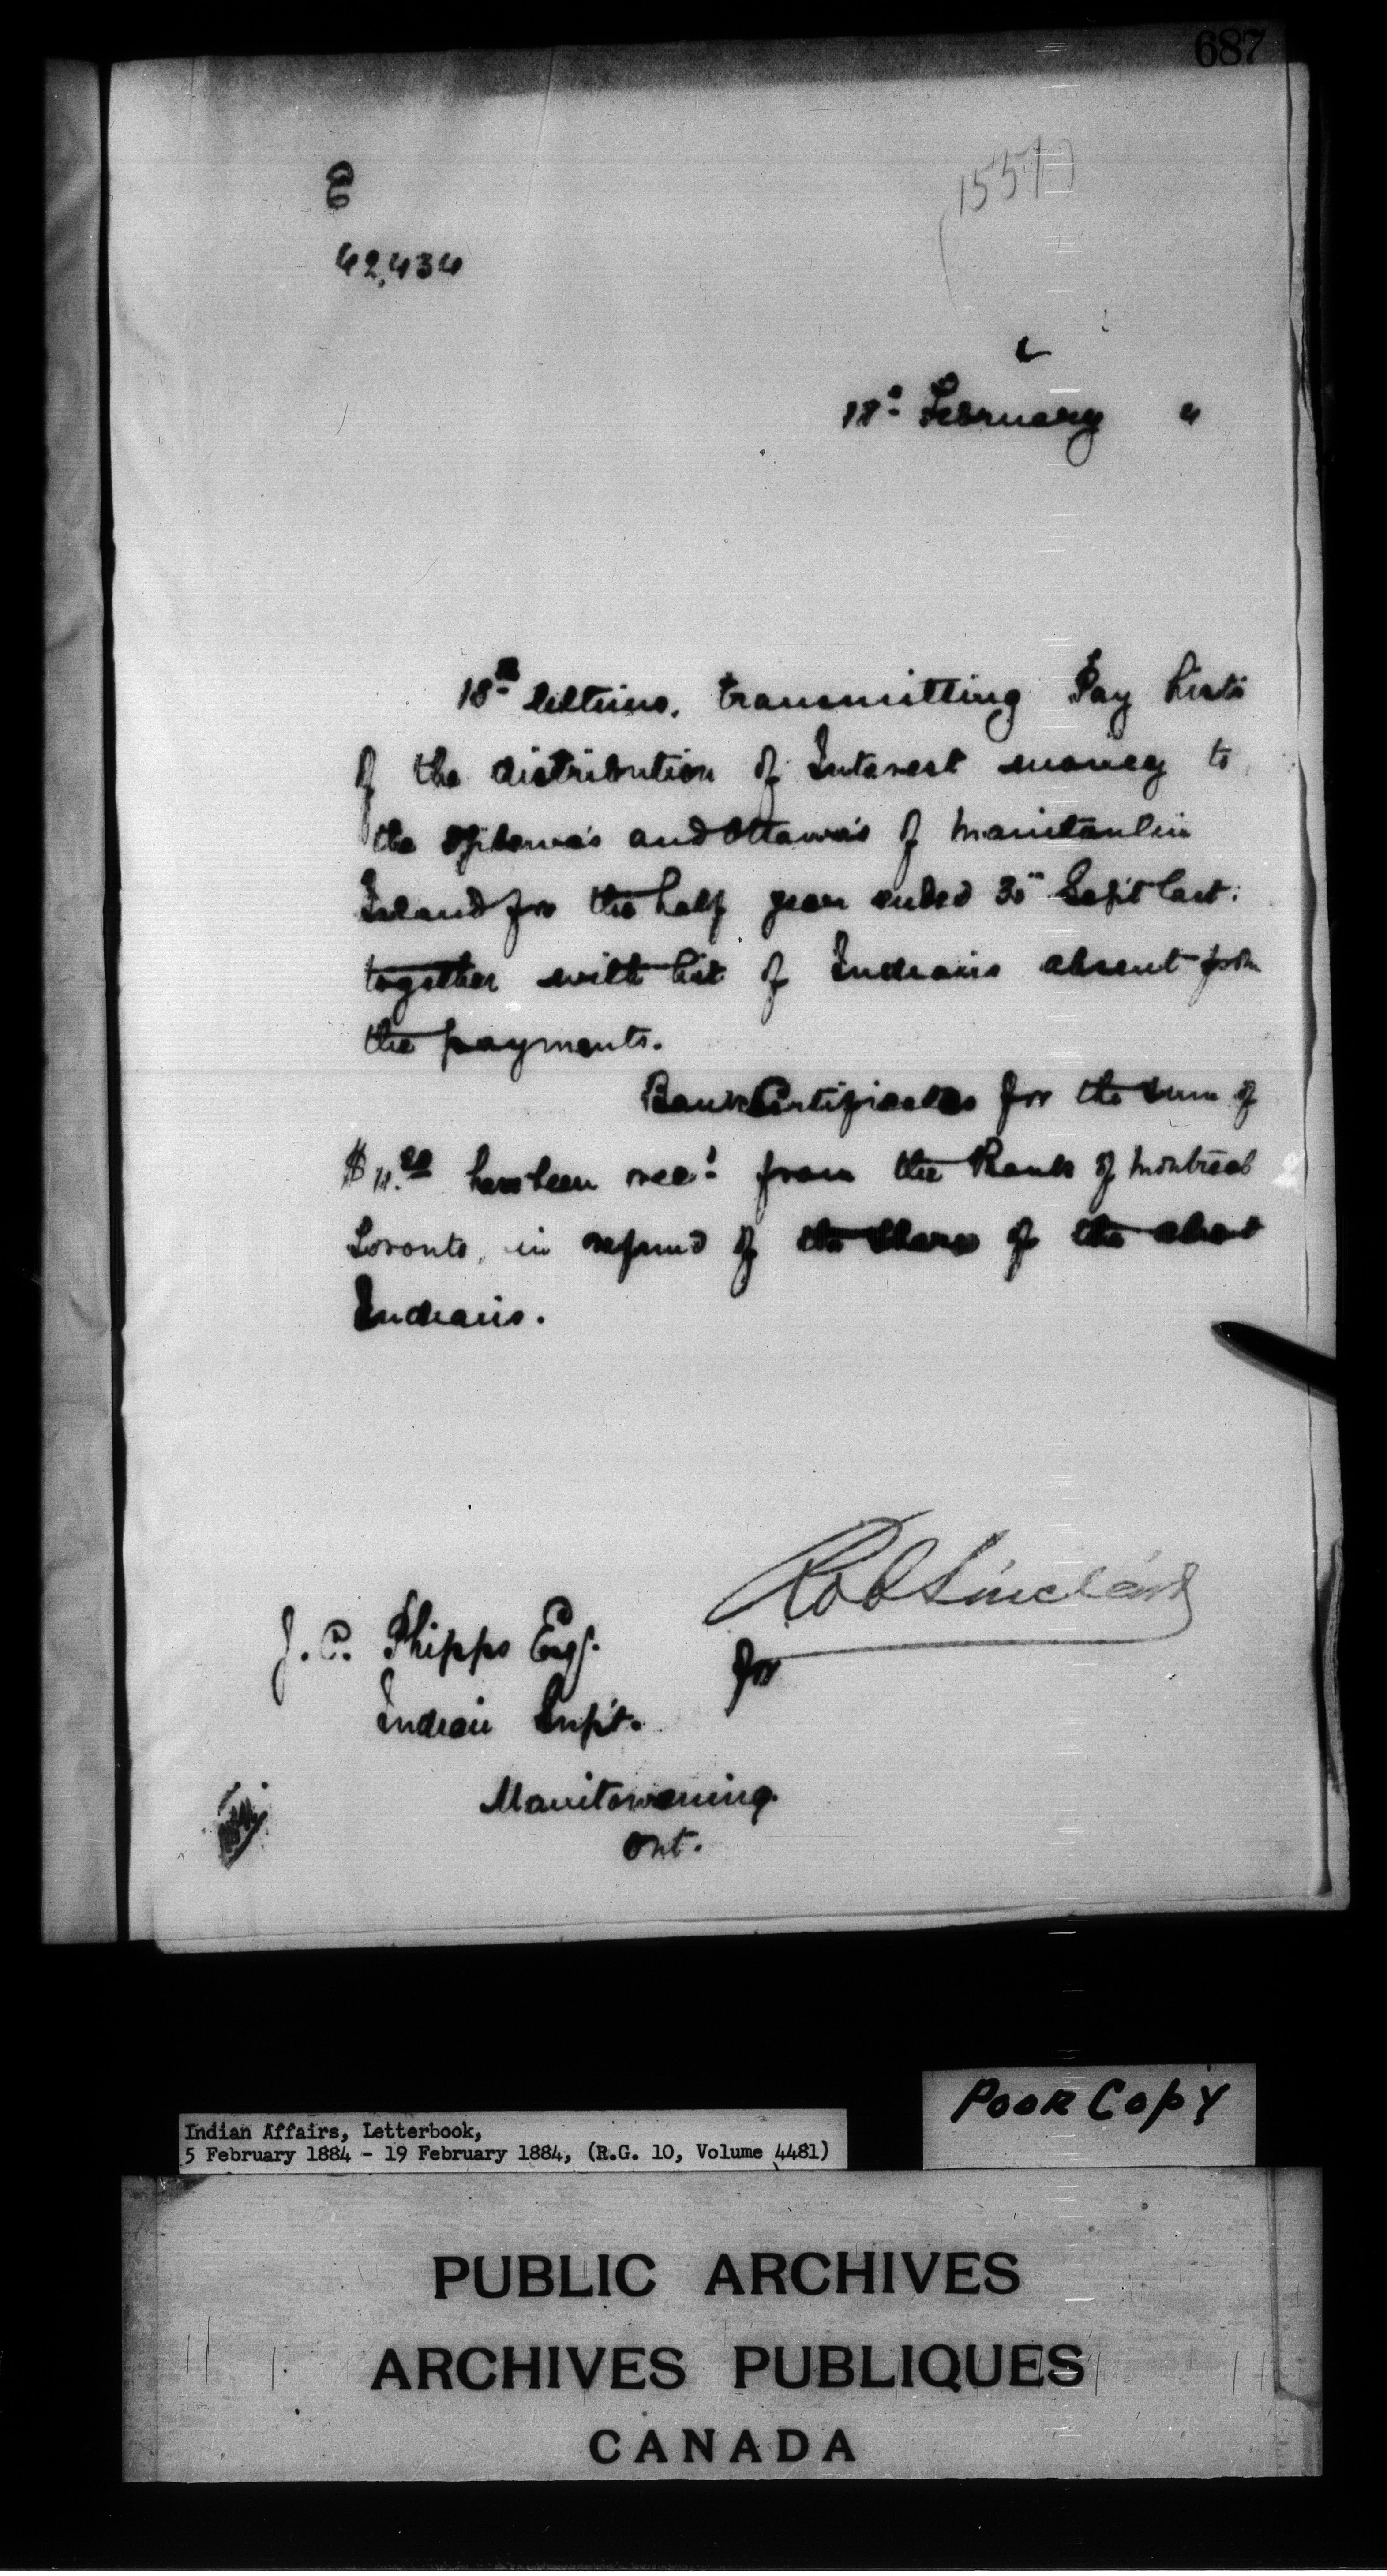 687
42,434
18th February "
18th ultimo, transmitting Pay Lists
of the distribution of Interest money to
the Ojibewa's and Ottawa's of Manitoulin
Island for the half year ended 30th Sept last.
together with list of Indians absent from
the payments.
Bank Certificates for the sum of
has been rec'd from the Bank of Montreal
Toronto, in refund of the Share of the absent
Indians.
Rob Sinclair
for
J. C. Phipps Esq.
Indian Supt.
Manitowaning.
Ont.
Poor Copy
Indian Affairs, Letterbook,
5 February 1884 - 19 February 1884, (R.G. 10, Volume 4481)
PUBLIC ARCHIVES
ARCHIVES PUBLIQUES
CANADA